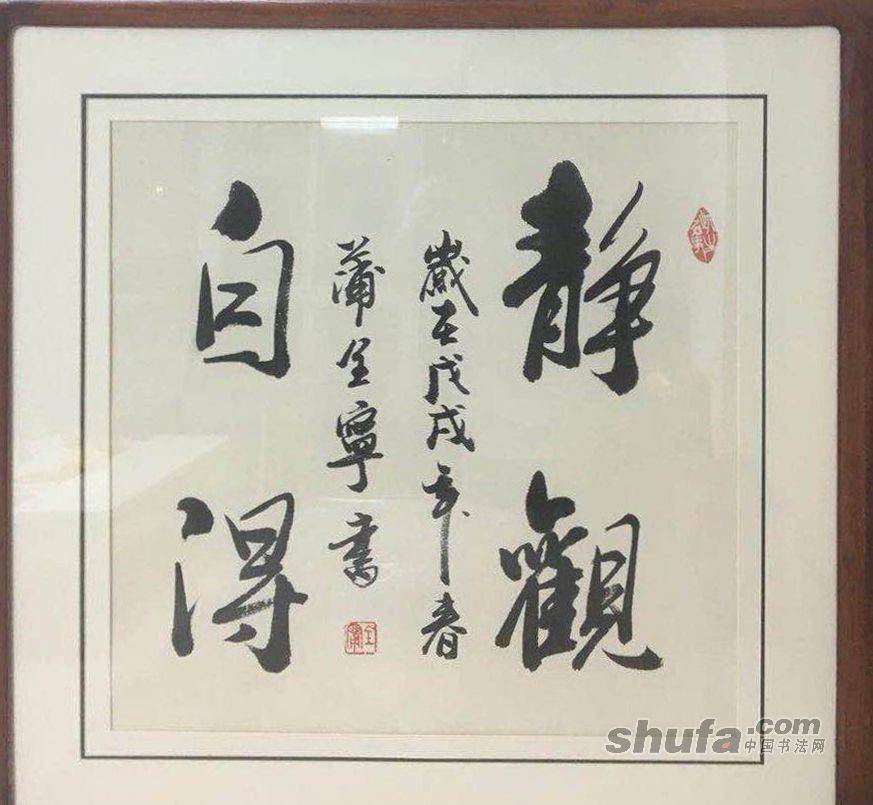 靜觀
自得
歲在戊戌年春
蒲全寧書
shufa.com
中国书法网